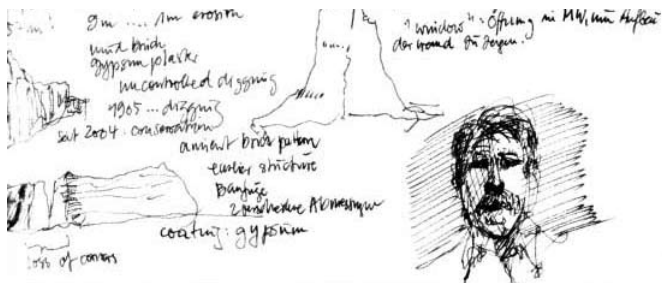 9m .... 1m erosion
mud brick
gypsum plaster
uncontrolled digging
1965 ... digging
seit 2004 : conservation
ancient brick pattern
earlier structure
Baufuge
2 verschiedene Abmessungen
coating : gypsum
loss of corners
"window" : Öffnung in MW, um Aufbau
der Wand zu zeigen.